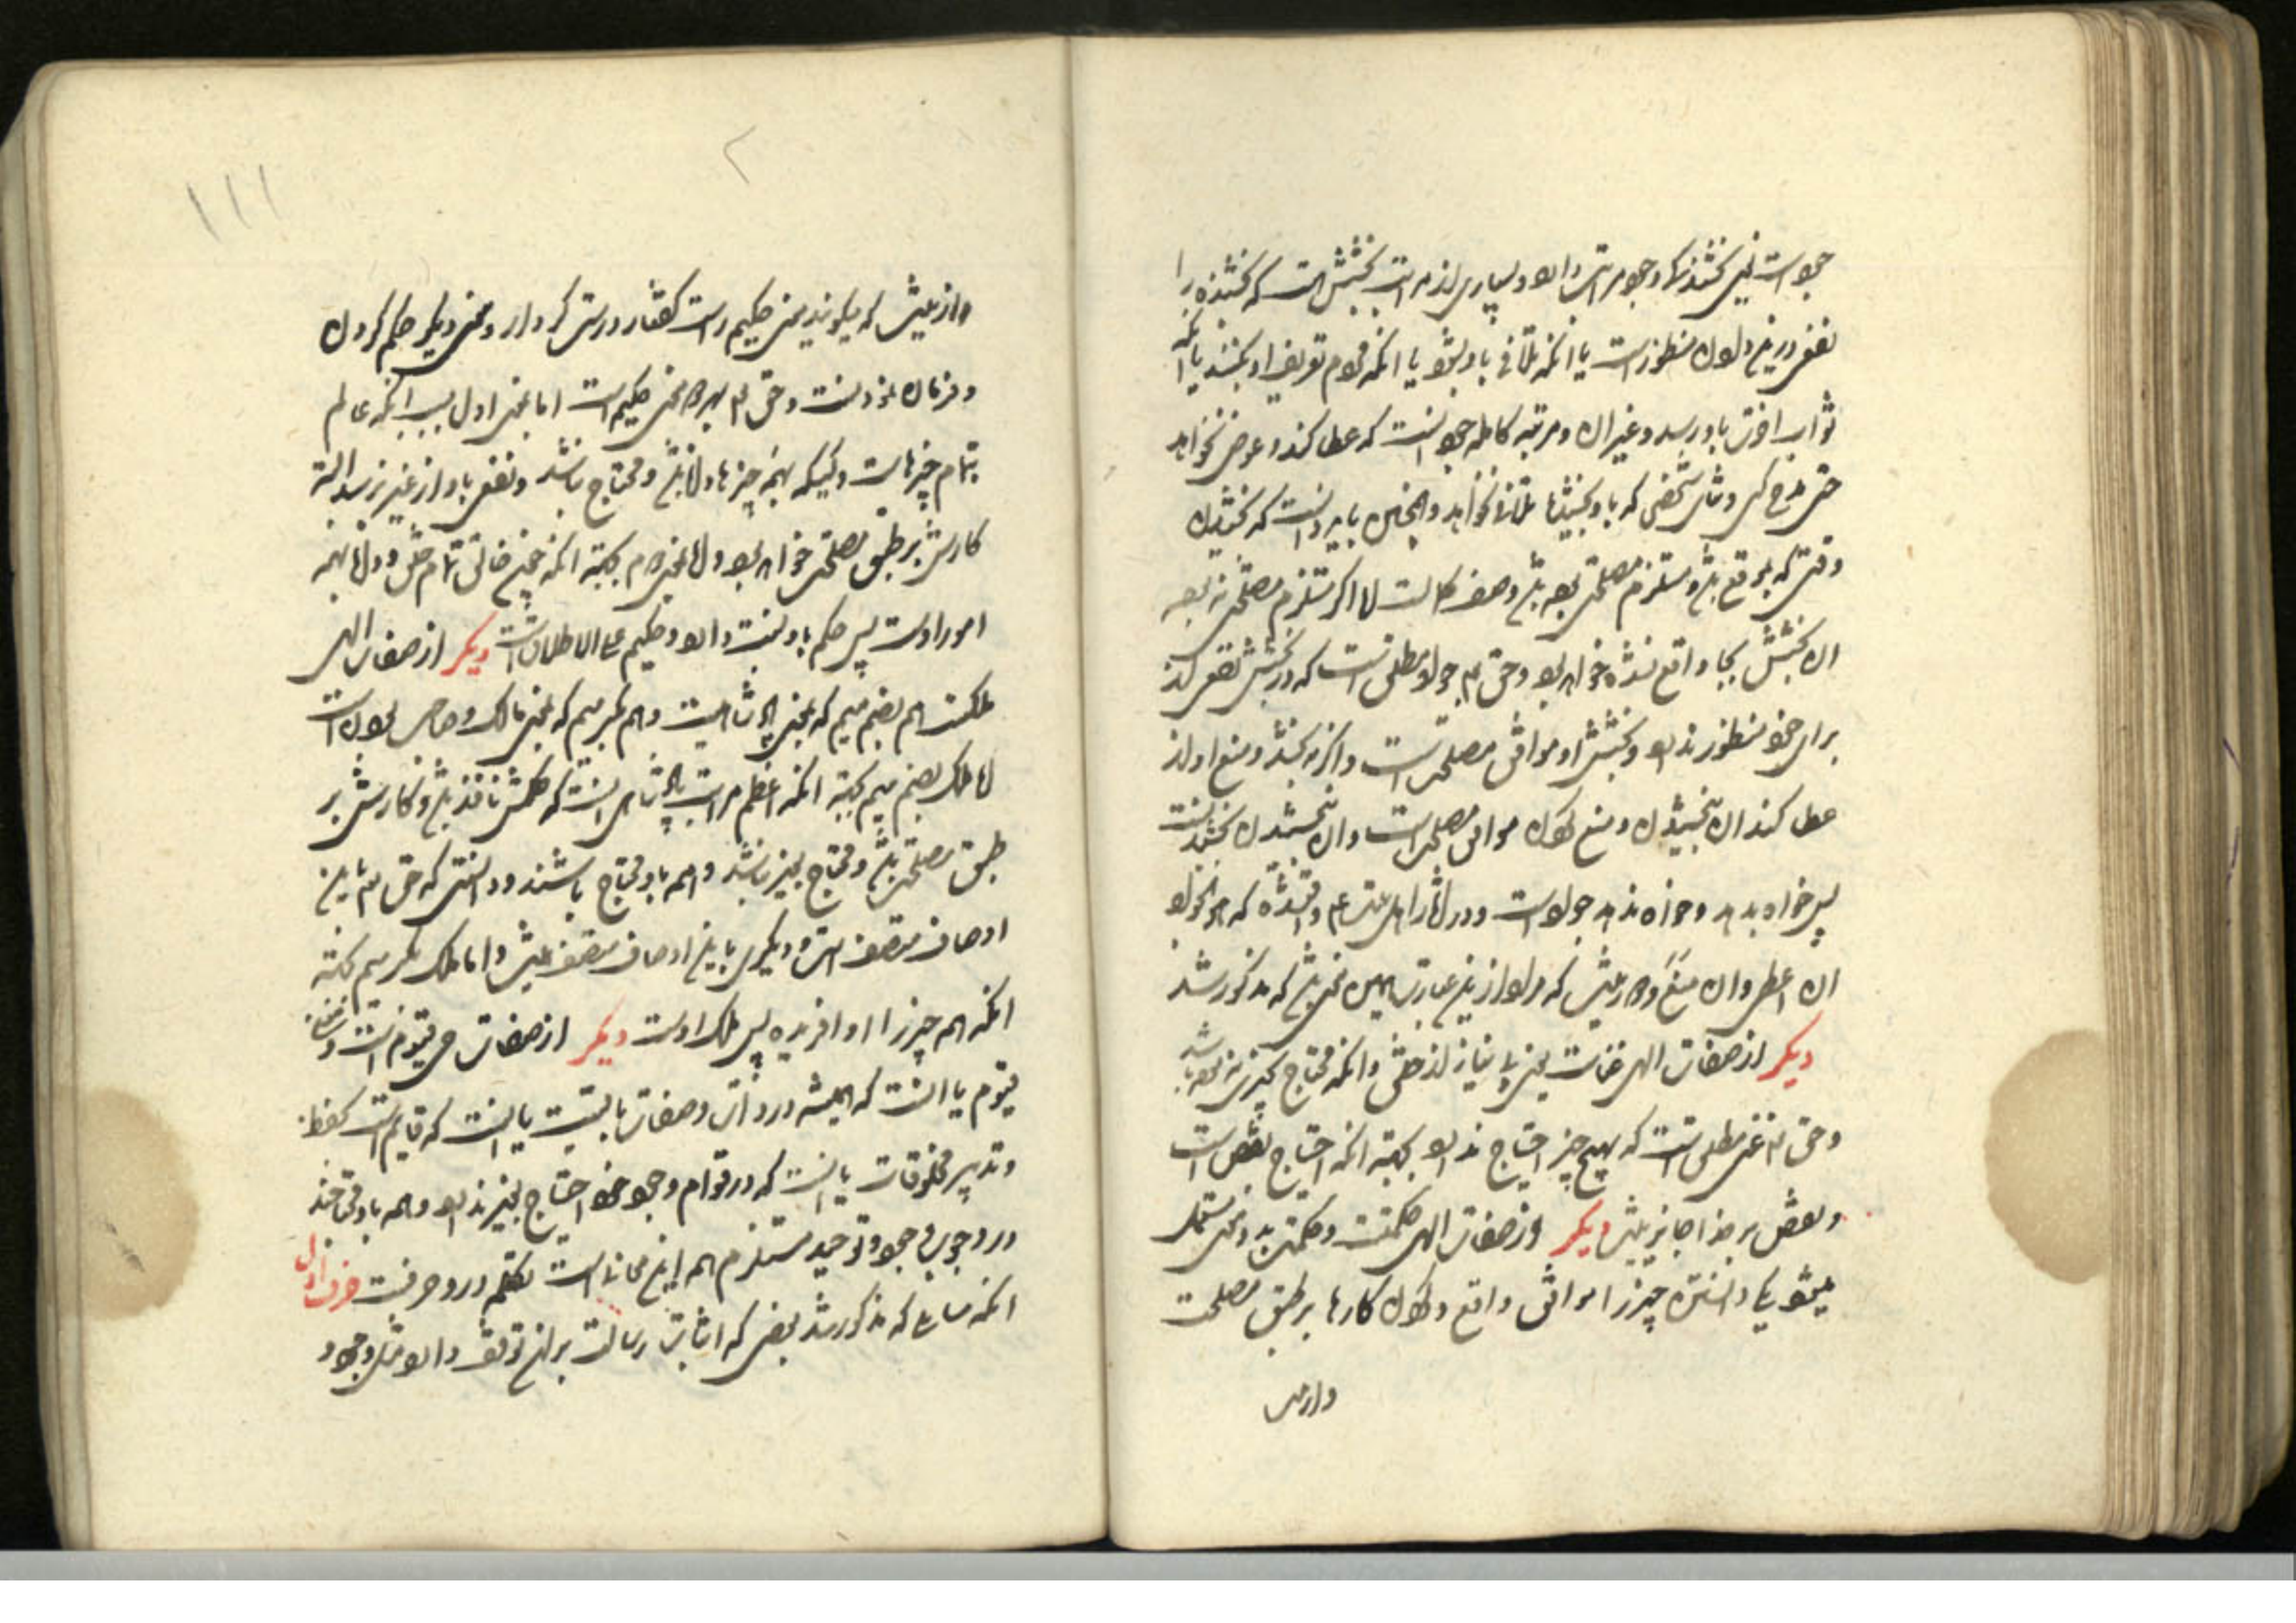 جود است یعنی بخشندگی و جود مراتب دارد و بسیاری از مراتب بخشش هست که بخشنده را
نفعی درین دادن منظور است یا آنکه تلافی باو بشود یا آنکه مردم تعریف او بکنند یا آنکه
ثواب اخروی باو برسد و غیر آن و مرتبه کامله جود آنست که عطا کند و عوض نخواهد
حتی مدح کسی و ثنای شخصی که باو بخشید تا تلافی نخواهد و همچنین باید دانست که بخشیدن
وقتی که بموقع باشد و مستلزم مصلحتی بوده باشد وصف کمالست اما اگر مستلزم مصلحتی نبود
آن بخشش بجا واقع نشده خواهد بود و حق تم جواد مطلق است که در بخشش نفعی که از
برای خود منظور ندارد و بخشش او موافق مصلحت است و اگر نه بخشد و منع او از
عطا کند آن نبخشیدن و منع کردن موافق مصلحت است و آن نبخشیدن بخشیدنست
پس خواه بدهد و خواه ندهد جواد است و در آثار اهل بیت عم واقع شده که هو الجواد
ان اعطی و ان منع و میتواند که مراد از این عبارت همین معنی باشد که مذکور شد
دیکر از صفات الهی غناست یعنی بی نیاز از خلق و آنکه محتاج بچیزی نبوده باشد
و حق تم غنی مطلق است که بهیچ چیز احتیاج ندارد بجهة آنکه احتیاج نقص است
و نقص بر خدا جایز نیست دیکر از صفات الهی حکمتست و حکمت بدو معنی مستعمل
میشود یکی دانستن چیزها موافق واقع و کردن کارها بر طبق مصلحت
و از بس
و از نیست که میکویند یعنی حکیم راست کفتار درست کردار و معنی دیکر حکم کردن
و فرمان نمودنست و حق تم بهر دو معنی حکیم است اما بمعنی اول بسبب آنکه عالم
بتمام چیزهاست و کسی که همه چیزها را داند و محتاج نباشد و نفعی باو از غیر نرسد البته
کارش بر طبق مصلحت خواهد بود و اما بمعنی دوم بجهة آنکه چون خالق تمام خلق و دانای همه
امور اوست پس حکم باو نسبت دارد و حکیم علی الاطلاق است دیکر از صفات الهی
ملکست هم بضم میم که بمعنی پادشاهیست و هم بکسر میم که بمعنی مالک و صاحب بودن است
اما ملک بضم میم بجهة آنکه اعظم مراتب پادشاهی اینست که حکمش نافذ باشد و کارش بر
طبق مصلحت باشد و محتاج بچیزی نباشد و همه باو محتاج باشند و دانستی که حق تم باین
اوصاف متصف است و دیکری باین اوصاف متصف نیست و اما ملک بکسر میم بجهة
آنکه همه چیز را او آفریده پس ملک اوست دیکر از صفات حی قیوم است و معنی
قیوم یا آنست که همیشه در ذات و صفات ثابتست یا آنست که قایم است بحفظ
و تدبیر مخلوقات یا آنست که در قوام وجود خود احتیاج بچیزی ندارد و همه باو محتاجند
و وجوب وجود و توحید مستلزم همه این معانی است تکلم در دو حرفست حرف اول
آنکه مسایلی که مذکور شد بعضی که اثبات رسالت بر آن توقف دارد مثل وجود